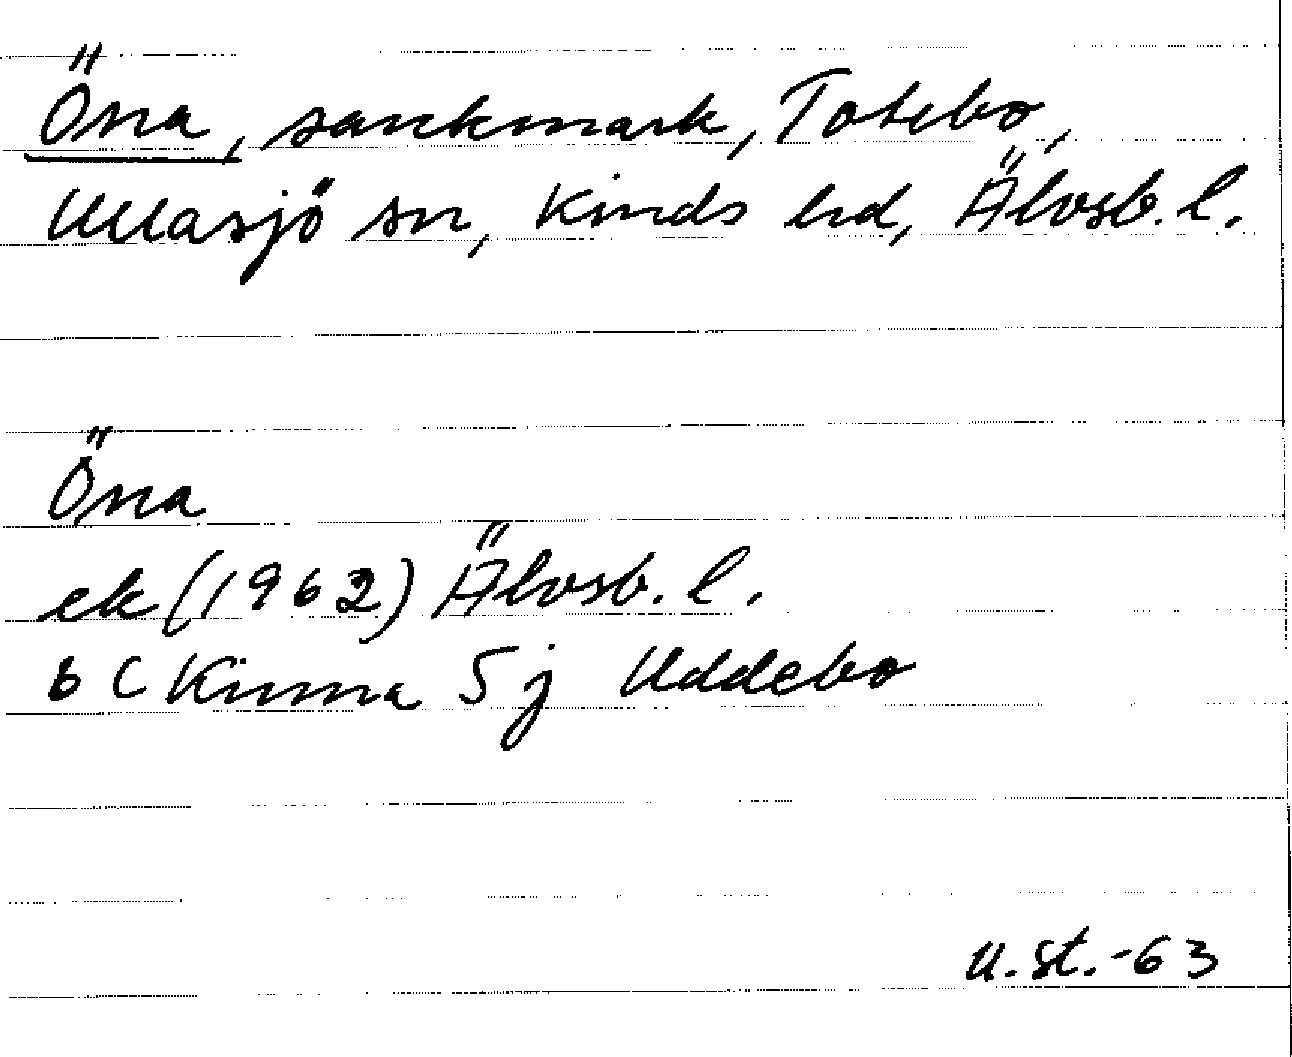 Öna, sankmark, Totebo,
Ullasjö sn, Kinds hd, Älvsb. l.
Öna
ek (1962) Älvsb. l.
6 C Kinna 5 j Uddebo
U. St. -63